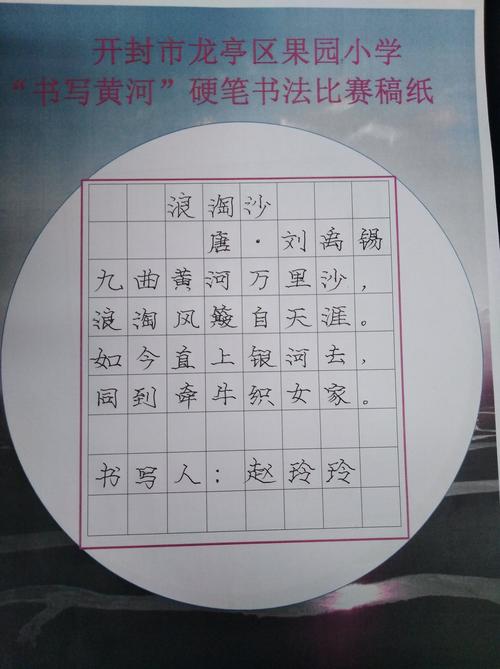 开封市龙亭区果园小学
“书写黄河”硬笔书法比赛稿纸
浪淘沙
唐·刘禹锡
九曲黄河万里沙，
浪淘风簸自天涯。
如今直上银河去，
同到牵牛织女家。
书写人：赵玲玲